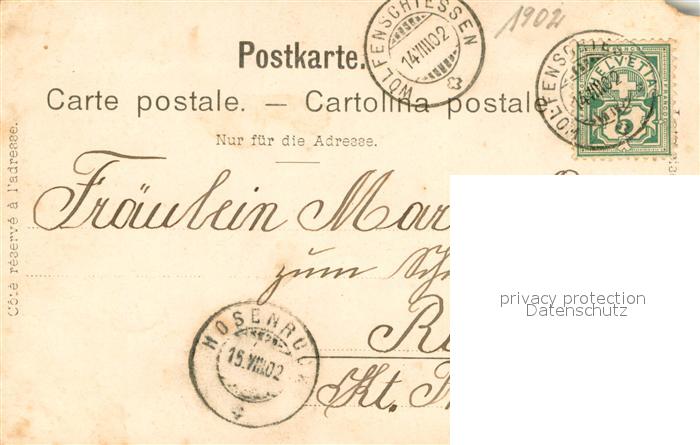 1902
WOLFENSCHIESSEN
14.VIII.02
Postkarte.
HELVETIA
5
Carte postale. — Cartolina postale
Nur für die Adresse.
Côté réservé à l'adresse.
Fräulein
zum
privacy protection
Datenschutz
15.VIII.02
Kt.